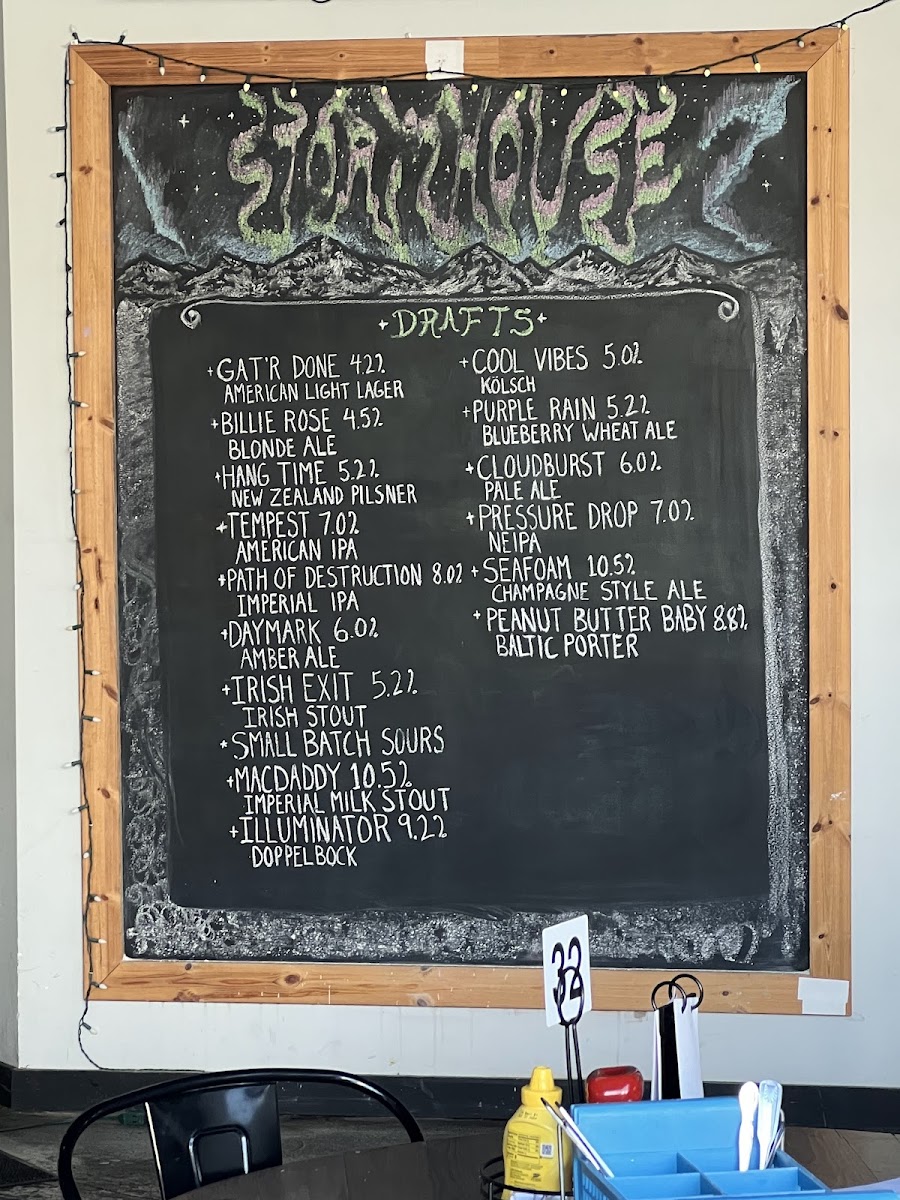 STORMHOUSE
DRAFTS
GAT'R DONE 4.2%
AMERICAN LIGHT LAGER
BILLIE ROSE 4.5%
BLONDE ALE
HANG TIME 5.2%
NEW ZEALAND PILSNER
TEMPEST 7.0%
AMERICAN IPA
PATH OF DESTRUCTION 8.0%
IMPERIAL IPA
DAYMARK 6.0%
AMBER ALE
IRISH EXIT 5.2%
IRISH STOUT
SMALL BATCH SOURS
MACDADDY 10.5%
IMPERIAL MILK STOUT
ILLUMINATOR 9.2%
DOPPELBOCK
COOL VIBES 5.0%
KÖLSCH
PURPLE RAIN 5.2%
BLUEBERRY WHEAT ALE
CLOUDBURST 6.0%
PALE ALE
PRESSURE DROP 7.0%
NEIPA
SEAFOAM 10.5%
CHAMPAGNE STYLE ALE
PEANUT BUTTER BABY 8.8%
BALTIC PORTER
32